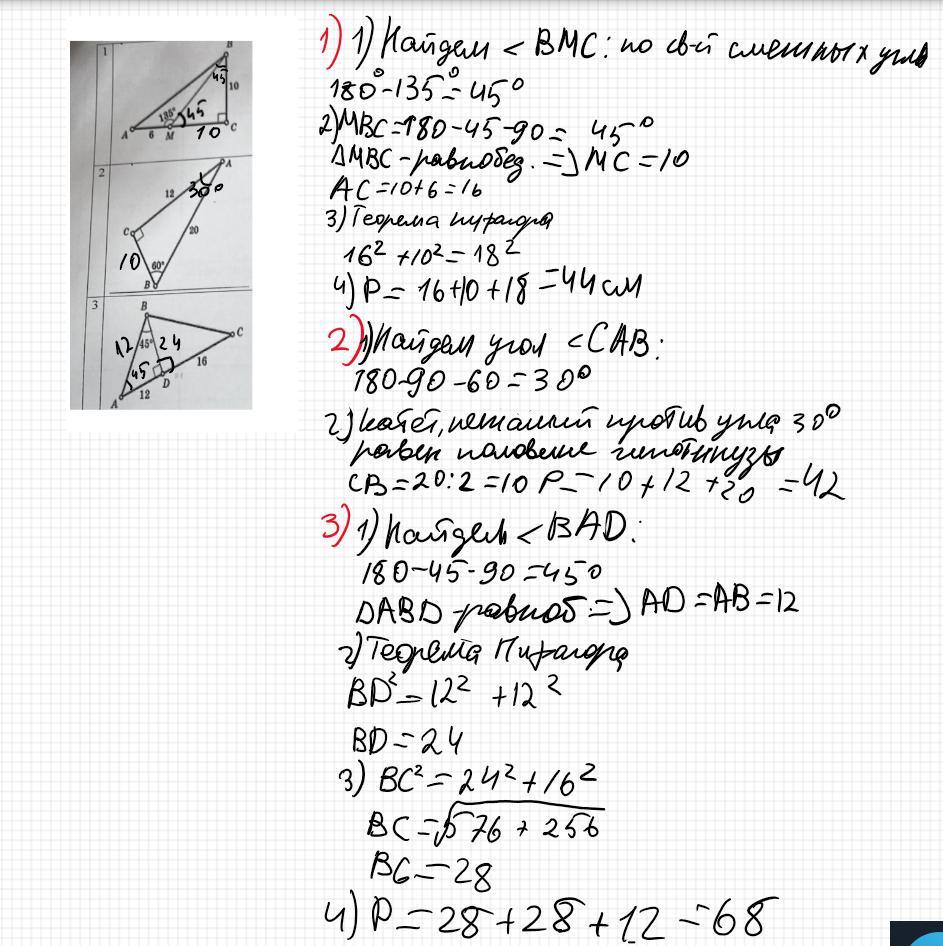 1
B
45
10
135°
45
A
6
M
10
C
2
A
12
30°
C
20
10
60°
B
3
B
C
12
45°
24
45
D
16
A
12
1) 1) Найдем < BMC: по св-й смежных углв
180°-135°=45°
2) MBC=180-45-90= 45°
ΔMBC-равнобед. => MC =10
AC=10+6=16
3) Теорема пифагора
16² +10²= 18²
4) P= 16+10+18 =44 см
2) 1) Найдем угол <CAB:
180-90-60=30°
2) катет, лежащий против угла 30°
равен половине гипотинузы
CB=20:2=10 P=10+12+20 =42
3) 1) Найдем < BAD:
180-45-90=45°
ΔABD-равноб.=> AD =AB=12
2) Теорема Пифагора
BD²=12² +12²
BD=24
3) BC²=24²+16²
BC=√576 + 256
BC=28
4) P=28+28+12 =68